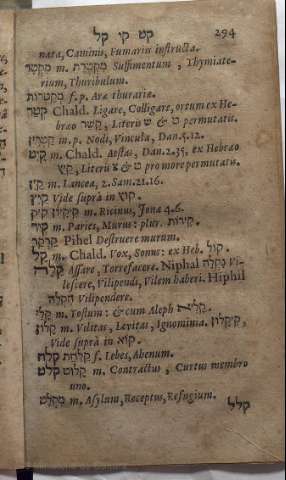 קט קי קל 294
nata, Caminis, Fumariis instructa.
מִקְטָר m. מִקְטֶרֶת Suffimentum, Thymiate-
rium, Thuribulum.
מְקַטְּרוֹת f. p. Aræ thurariæ.
קְטַר Chald. Ligare, Colligare, ortum ex He-
bræo קשר, Literis ש & ט permutatis.
קִטְרִין m. p. Nodi, Vincula, Dan. 5.12.
קַיִט m. Chald. Æstas, Dan. 2.35, ex Hebræo
קַיִץ, Literis צ & ט pro more permutatis.
קַיִן m. Lancea, 2. Sam. 21.16.
קִיץ Vide suprà in קוץ.
קיק קִיקָיוֹן m. Ricinus, Jona 4.6.
קִיר m. Paries, Murus: plur. קִירוֹת.
קַרְקַר Pihel Destruere murum.
קָל m. Chald. Vox, Sonus: ex Heb. קוֹל.
קָלָה Assare, Torrefacere. Niphal נִקְלָה Vi-
lescere, Vilipendi, Vilem haberi. Hiphil
הִקְלָה Vilipendere.
קָלִי m. Tostum: & cum Aleph קָלִיא.
קָלוֹן m. Vilitas, Levitas, Ignominia. קִיקָלוֹן,
Vide suprà in קוא.
קלח קַלַּחַת f. Lebes, Ahenum.
קלט קָלוּט m. Contractus, Curtus membro
uno.
מִקְלָט m. Asylum, Receptus, Refugium.
קלל